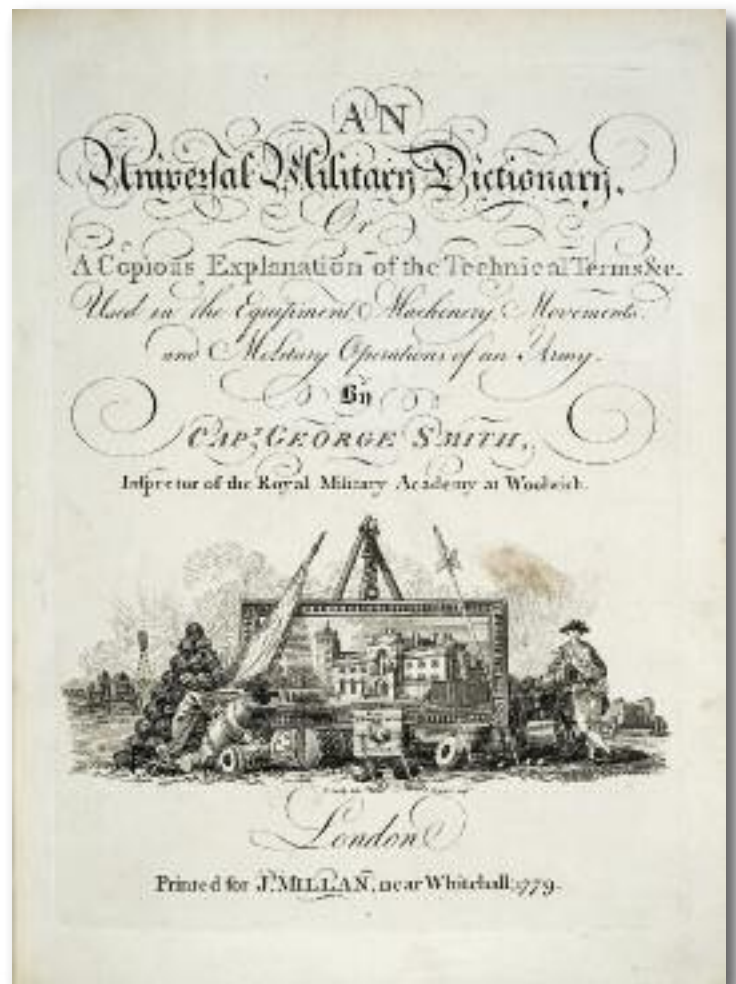 AN
Universal Military Dictionary,
Or
A Copious Explanation of the Technical Terms &c.
Used in the Equipment, Machinery, Movements,
and Military Operations of an Army.
By
CAPT. GEORGE SMITH,
Inspector of the Royal Military Academy at Woolwich.
London
Printed for J. MILLAN, near Whitehall; 1779.